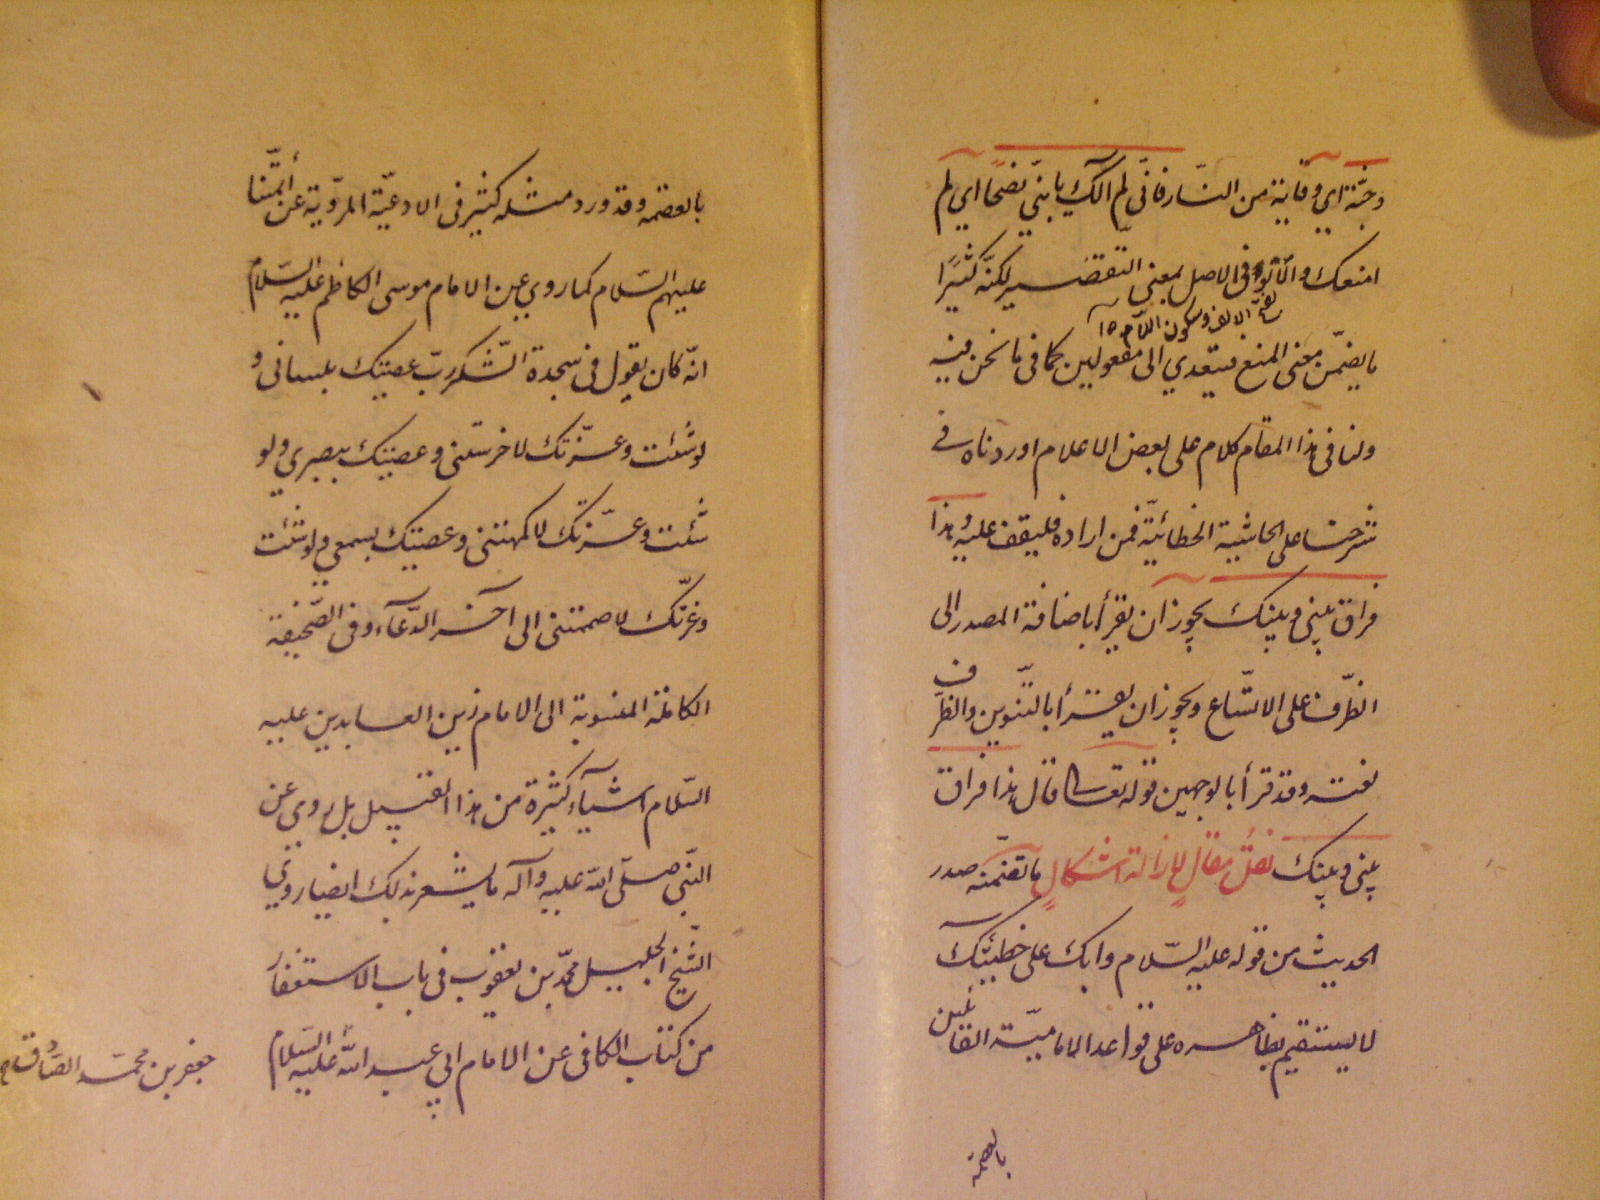 وجنّة اي وقاية من النّار فانّى لم آلك يا بنيّ نصحًا اي لم
امنعك والالو فى الاصل بمعنى التّقصير لكنّه كثيرًا
بفتح الالف وسكون اللّام
ما يضمّن معنى المنع فيتعدي الى مفعولين كما فى ما نحن فيه
ولنا فى هذا المقام كلام على بعض الاعلام اوردناه فى
شرحنا على الحاشية الخطائيّة فمن اراده فليقف عليه وهذا
فراق بينى وبينك يجوز ان يقرأ باضافة المصدر الى
الظّرف على الاتّساع ويجوز ان يقرأ بالتّنوين والظّرف
نعته وقد قرأ بالوجهين قوله تعالى قال هذا فراق
بينى وبينك نقل مقال لازالة اشكال ما تضمّنه صدر
الحديث من قوله عليه السّلام وابك على خطيئتك
لا يستقيم بظاهره على قواعد الاماميّة القائلين
بالعصمة
بالعصمة وقد ورد مثله كثير فى الادعيّة المرويّة عن أئمّتنا
عليهم السّلام كما روي عن الامام موسى الكاظم عليه السّلام
انّه كان يقول فى سجدة الشّكر ربّ عصيتك بلسانى و
لو شئت وعزّتك لاخرستنى وعصيتك ببصري ولو
شئت وعزّتك لاكمهتنى وعصيتك بسمعي ولو شئت
وعزّتك لاصممتنى الى آخر الدّعآء وفى الصّحيفة
الكاملة المنسوبة الى الامام زين العابدين عليه
السّلام اشيآء كثيرة من هذا القبيل بل روي عن
النّبى صلّى الله عليه وآله ما يشعر بذلك ايضا روي
الشّيخ الجليل محمّد بن يعقوب فى باب الاستغفار
من كتاب الكافى عن الامام ابي عبد الله عليه السّلام
جعفر بن محمّد الصّادق